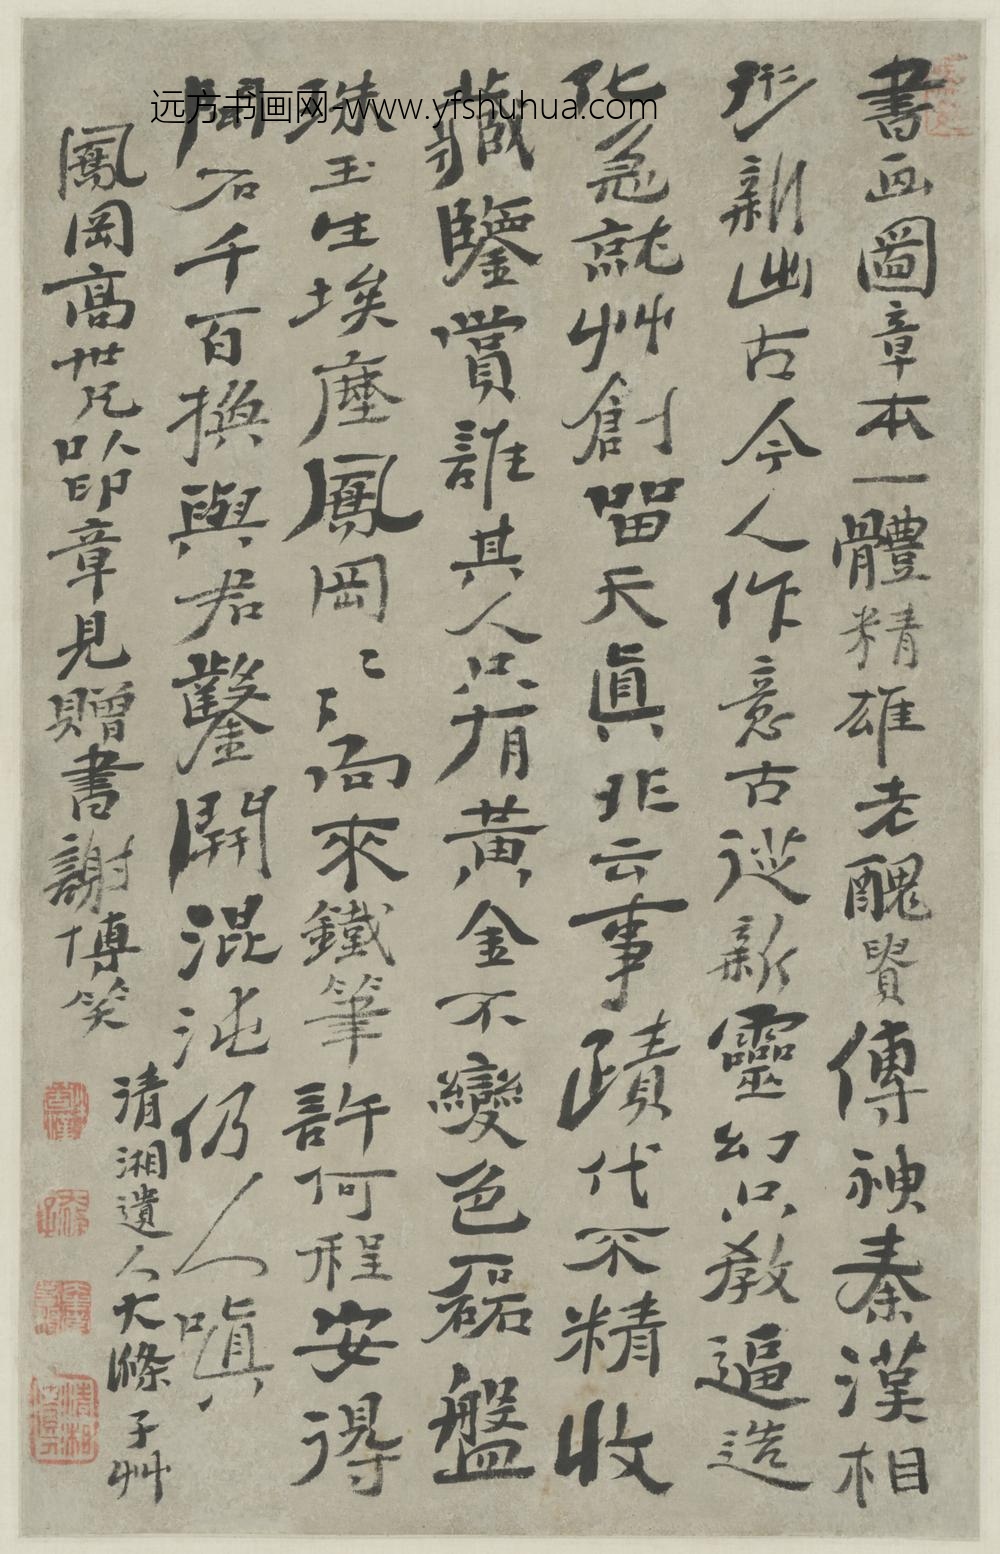 書画圖章本一體精雄老醜貴傳神秦漢相
形新出古今人作意古從新靈幻只教逼造
化急就艸創留天真非云事蹟代不精收
藏鑒賞誰其人只有黃金不變色磊盤
珠玉生埃塵鳳岡鳳岡向來鐵筆許何程安得
聞石千百換與君鑿開混沌仍人嗔
鳳岡高世兄以印章見贈書謝博笑
清湘遺人大滌子艸
远方书画网-www.yfshuhua.com